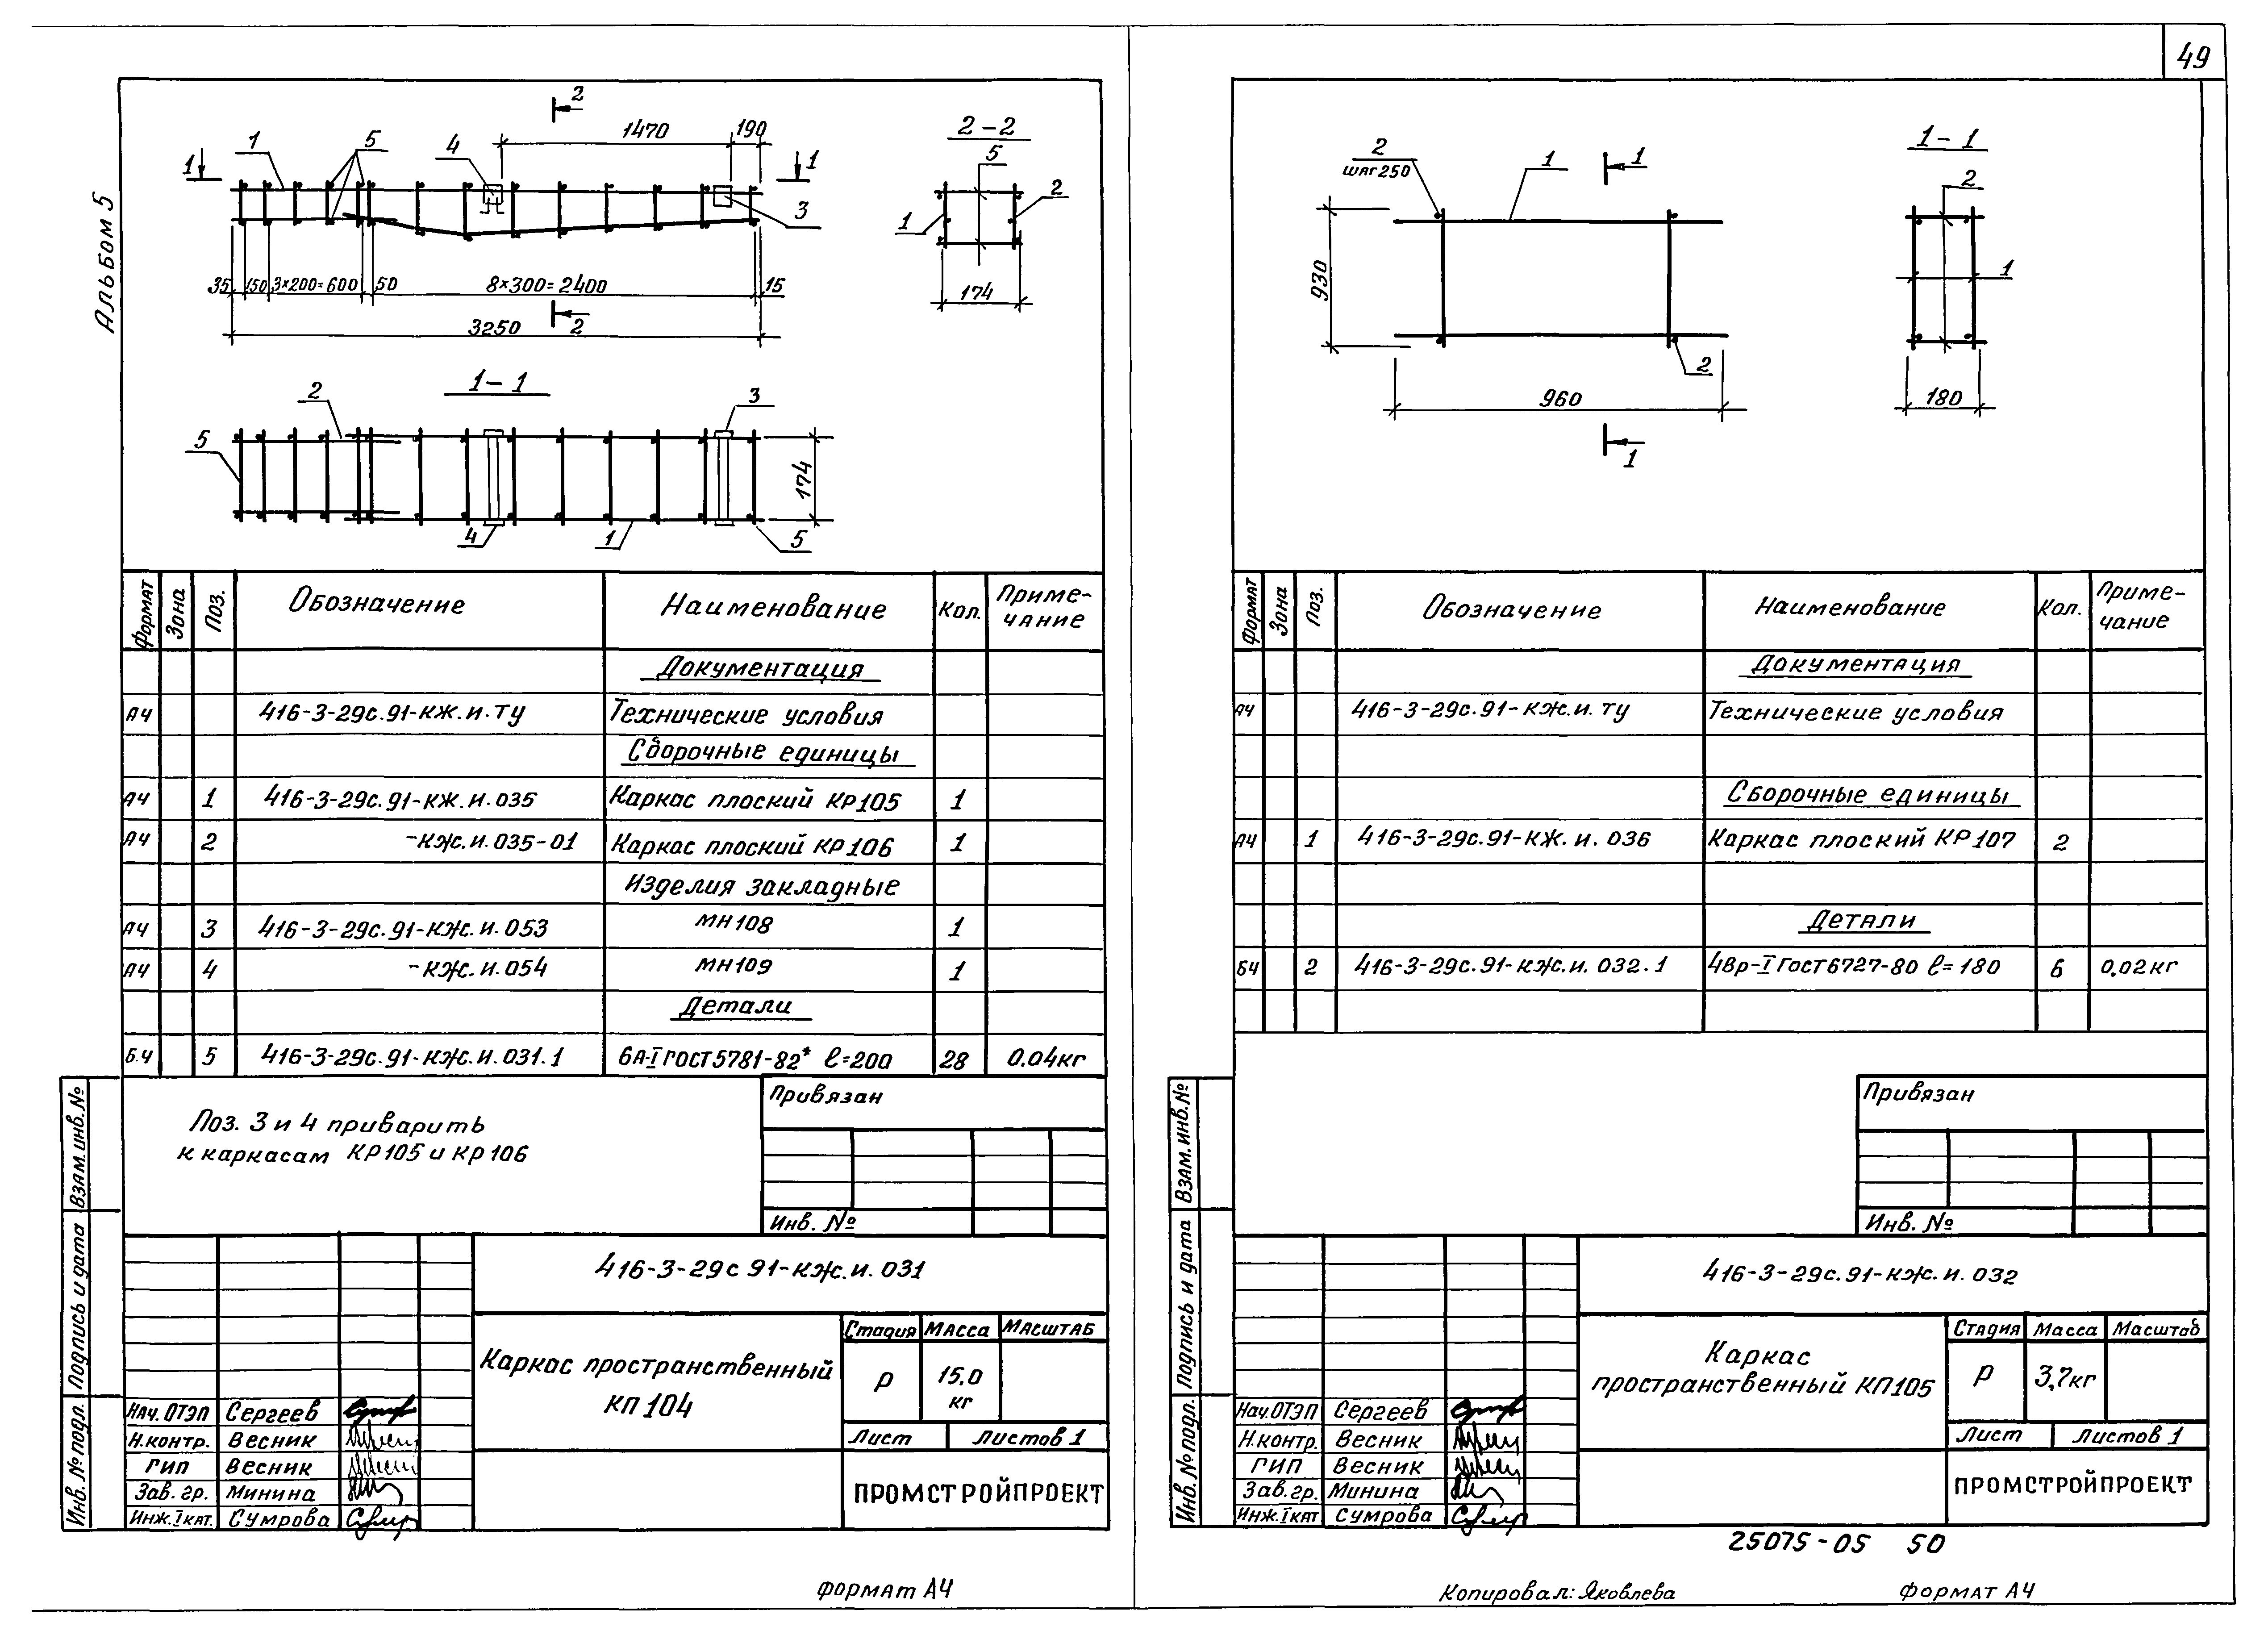 49
Альбом 5
2
1470
190
1
5
4
1
1
3
35
150
3×200=600
50
8×300=2400
15
3250
2
2-2
5
2
1
174
1-1
2
3
5
174
4
1
5
Формат Зона Поз. Обозначение Наименование Кол. Приме-
чание
Документация
А4 416-3-29с.91-кж.и.ту Технические условия
Сборочные единицы
А4 1 416-3-29с.91-кж.и.035 Каркас плоский КР105 1
А4 2 -кж.и.035-01 Каркас плоский КР106 1
Изделия закладные
А4 3 416-3-29с.91-кж.и.053 МН108 1
А4 4 -кж.и.054 МН109 1
Детали
Б.4 5 416-3-29с.91-кж.и.031.1 6А-I ГОСТ5781-82* ℓ=200 28 0.04кг
Поз. 3 и 4 приварить
к каркасам КР105 и КР106
Привязан
Инв. №
Взам.инв.№
Подпись и дата
Инв.№подл.
416-3-29с 91-кж.и.031
Каркас пространственный
КП104
Стадия Масса Масштаб
Р 15.0
кг
Лист Листов 1
ПРОМСТРОЙПРОЕКТ
Нач.ОТЭП Сергеев
Н.контр. Весник
ГИП Весник
Зав.гр. Минина
Инж.Iкат. Сумрова
формат А4
2
шаг250
1
1
930
2
960
1
1-1
2
1
180
Формат Зона Поз. Обозначение Наименование Кол. Приме-
чание
Документация
А4 416-3-29с.91-кж.и.ту Технические условия
Сборочные единицы
А4 1 416-3-29с.91-кж.и.036 Каркас плоский КР107 2
Детали
Б4 2 416-3-29с.91-кж.и.032.1 4Вр-I Гост6727-80 ℓ=180 6 0,02кг
Привязан
Инв. №
Взам.инв.№
Подпись и дата
Инв.№подл.
416-3-29с.91-кж.и.032
Каркас
пространственный КП105
Стадия Масса Масштаб
Р 3,7кг
Лист Листов 1
ПРОМСТРОЙПРОЕКТ
Нач.ОТЭП Сергеев
Н.контр. Весник
ГИП Весник
Зав.гр. Минина
Инж.Iкат Сумрова
25075-05 50
Копировал: Яковлева
формат А4